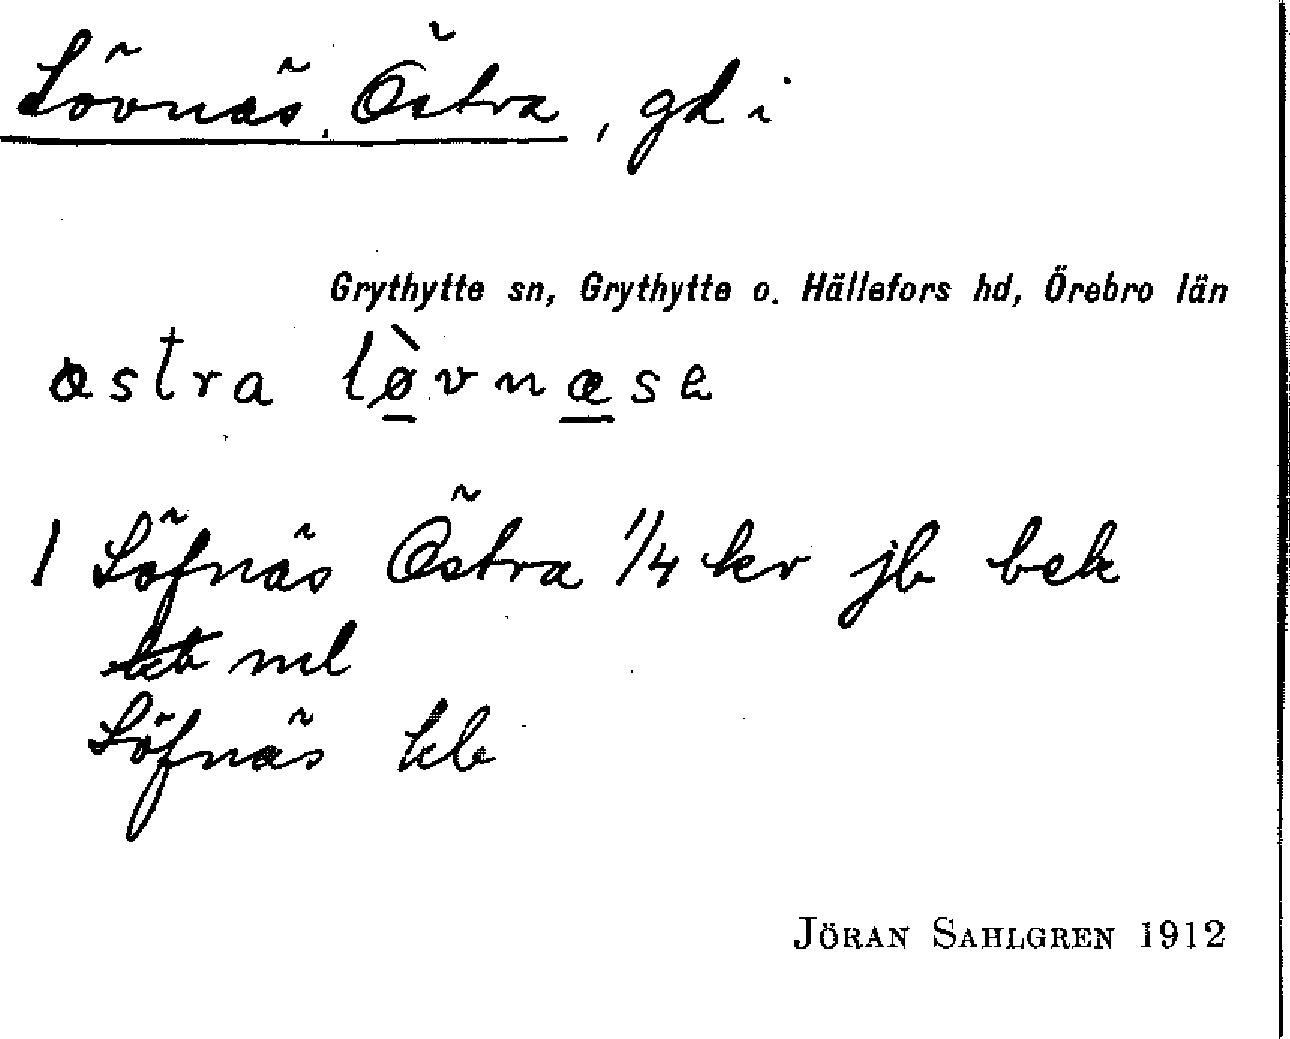 Lövnäs, Östra, gd i
Grythytte sn, Grythytte o. Hällefors hd, Örebro län
østra lø̀vnæse
1 Löfnäs Östra 1/4 kr jb bek
ml
Löfnäs kb
JÖRAN SAHLGREN 1912